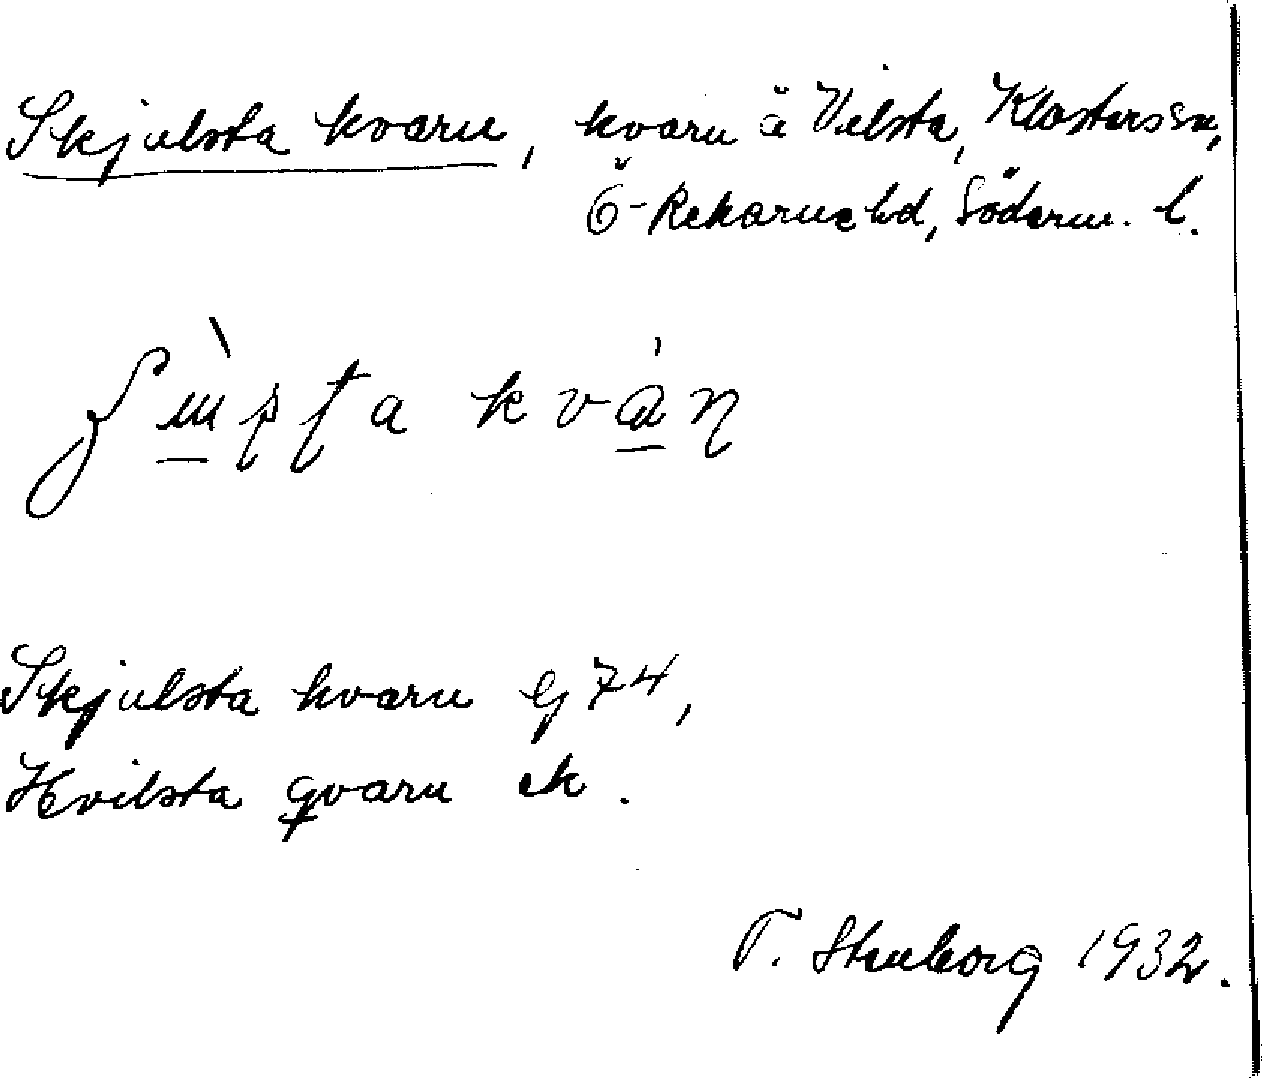 Skjulsta kvarn, kvarn å Vilsta, Klosters sn,
Ö-Rekarne hd, Söderm. l.
kván
Skjulsta kvarn Gj 74,
Hvilsta qvarn ek.
T. Stenborg 1932.